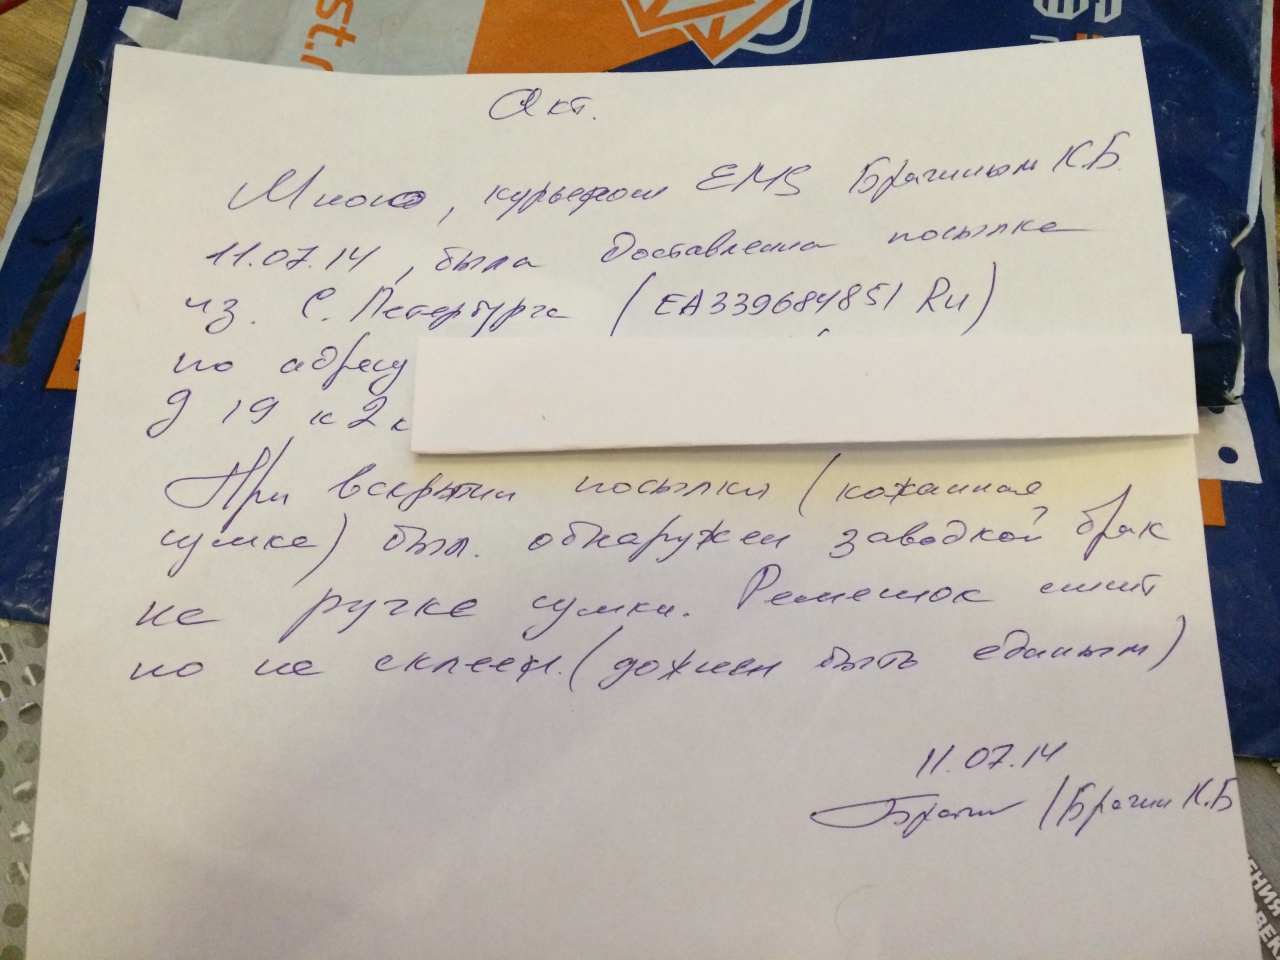 st.r
Акт.
Мною, курьером EMS Брагиным К.Б.
11.07.14, была доставлена посылка
из С. Петербурга (EA339684851 Ru)
по адресу
д 19 к 2 к
При вскрытии посылки (кожанная
сумка) был обнаружен заводкой брак
на ручке сумки. Ремешок сшит
но не склеен. (должен быть единым)
11.07.14
Брагин /Брагин К.Б
ЕНИЯ
ОВЕК